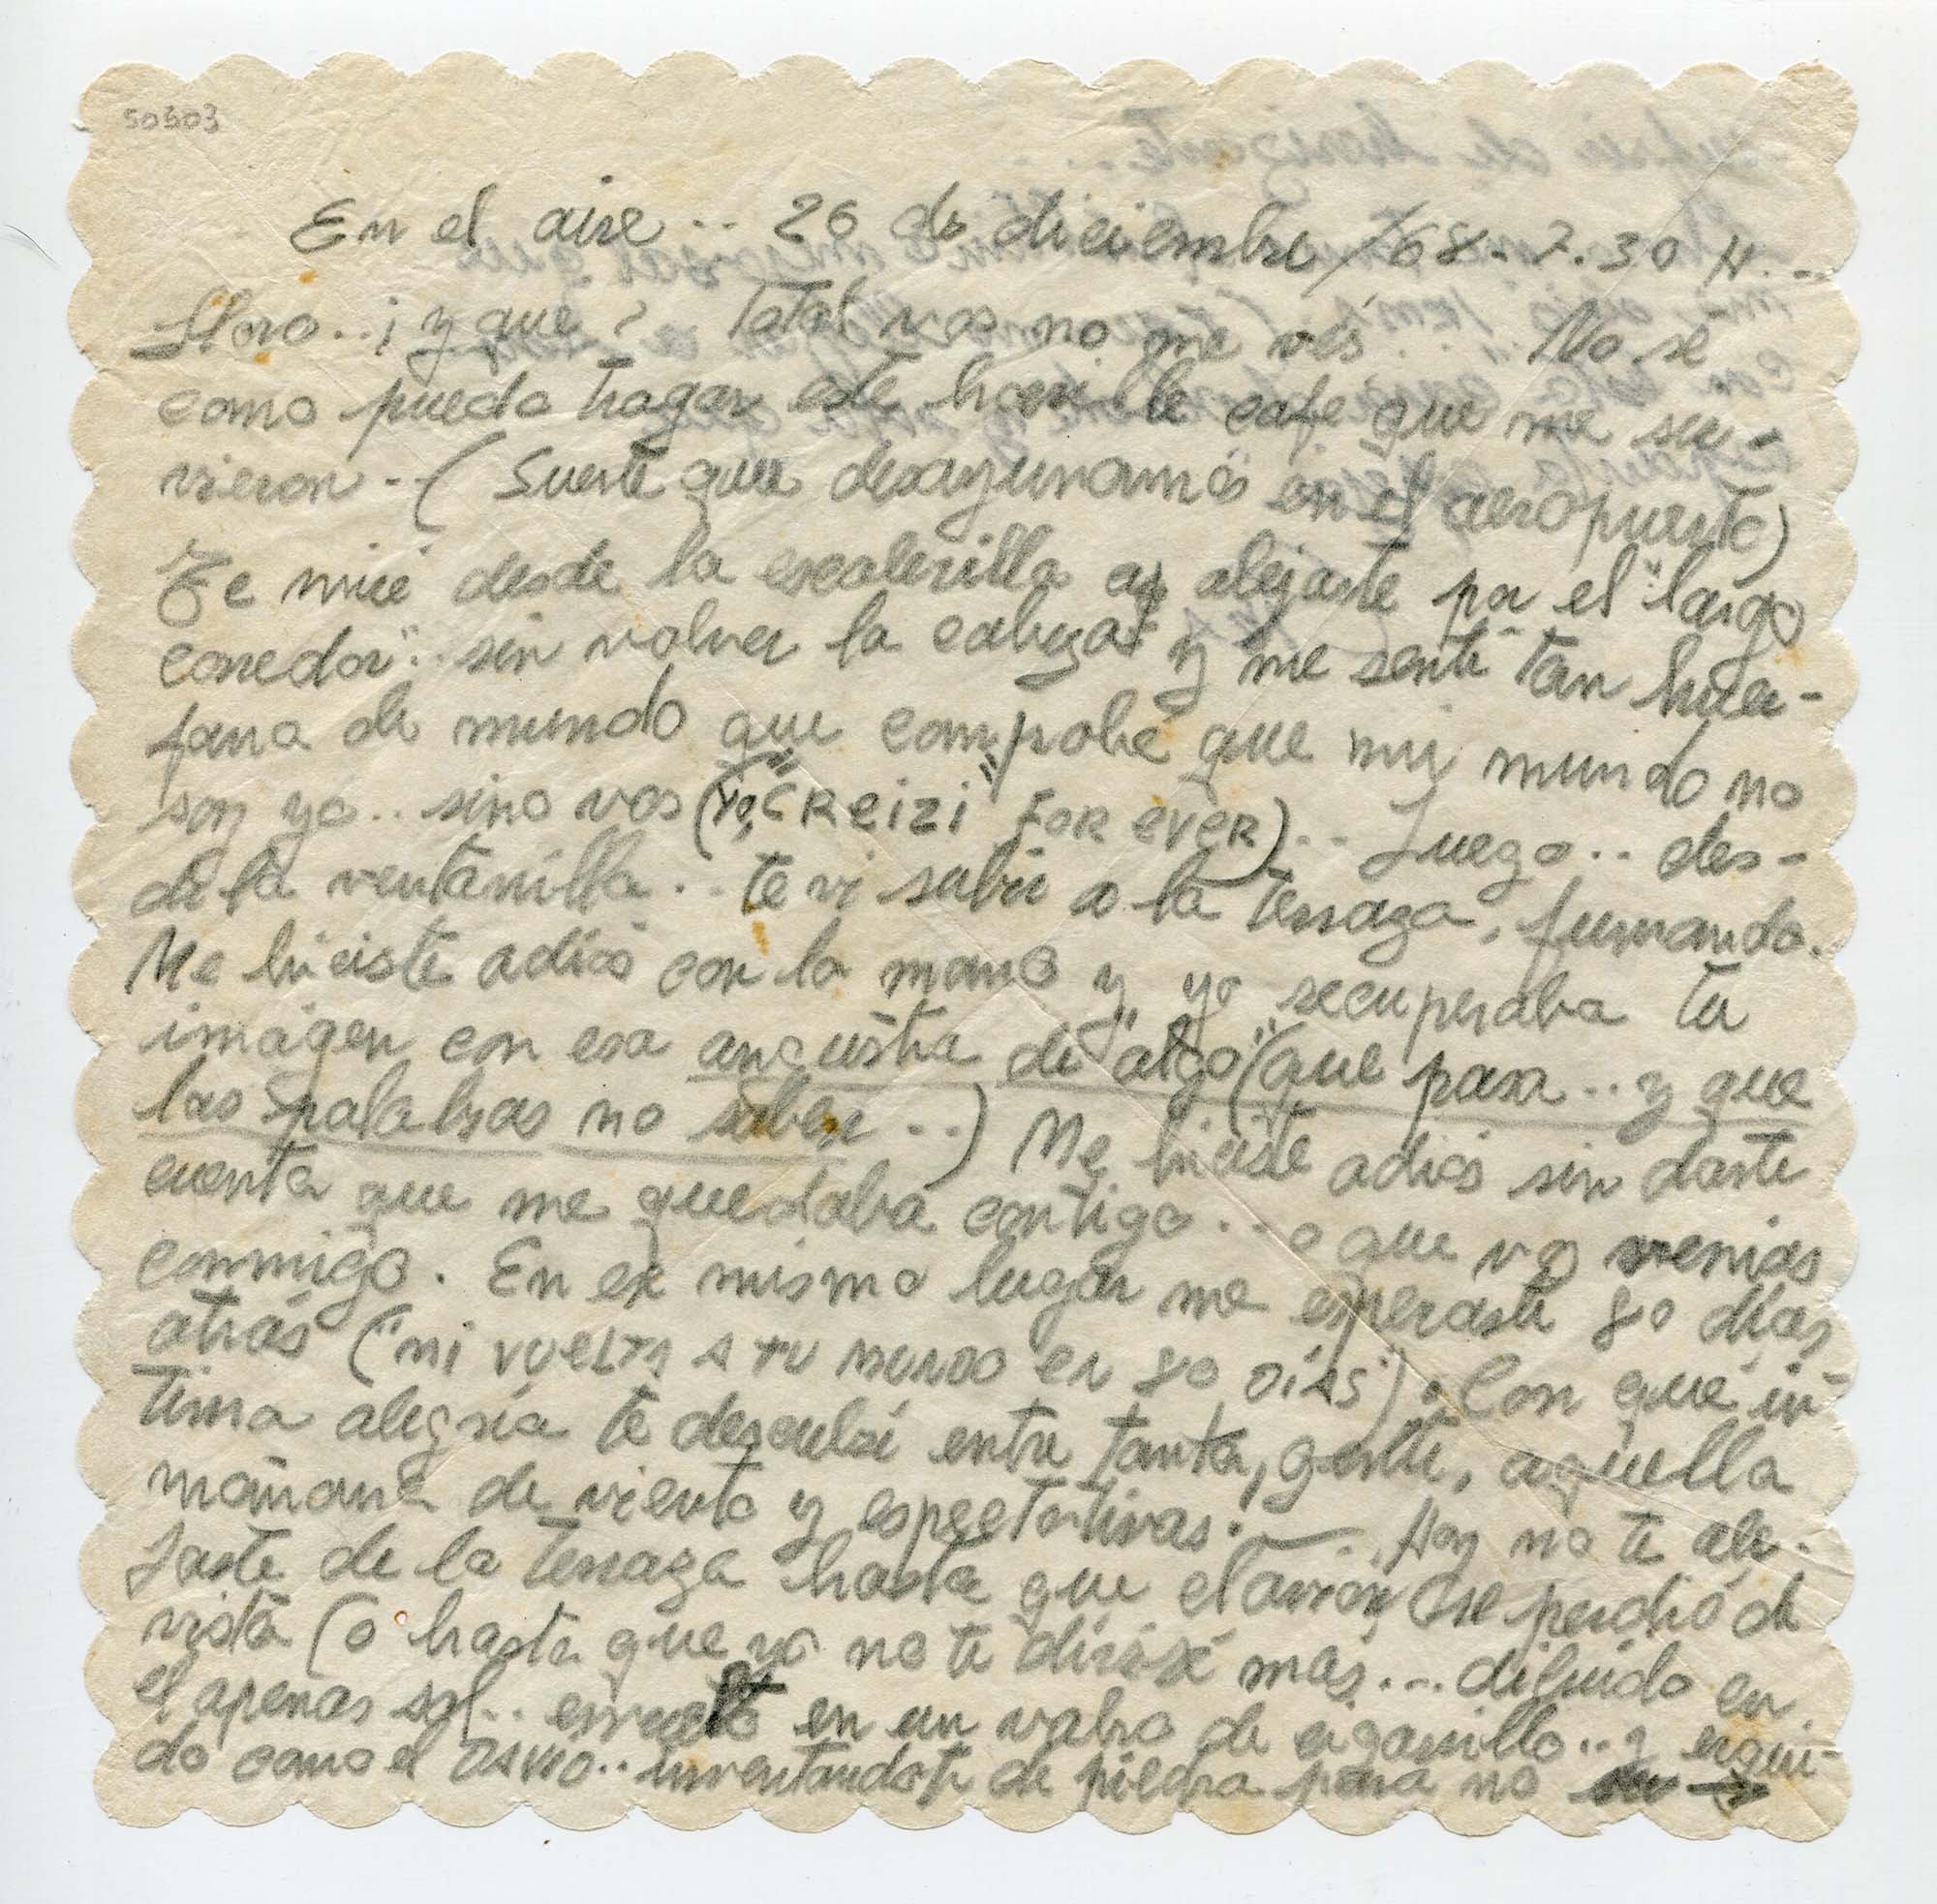 50303
En el aire... 26 de diciembre /68. 7.30 H...
Lloro..¡y que? Total vos no me vés... No sé
como puedo tragar este horrible cafe que me sir-
vieron.-(Suerte que desayunamos en el aeropuerto)
Te miré desde la escalerilla alejarte por el "largo
corredor".. sin volver la cabeza y me sentí tan huer-
fana de mundo que comprobé que mi mundo no
soy yo.. sino vos (yo, "CReizi" FOR EVER)... Luego.. des-
de la ventanilla... te vi subir a la terraza, fumando.
Me hiciste adiós con la mano y yo recuperaba tu
imágen con esa angustia de "algo" (que pasa.. y que
las palabras no saben...) Me hiciste adios sin darte
cuenta que me quedaba contigo... o que vos venias
conmigo. En ese mismo lugar me esperaste 80 días
atrás ("mi vuelta a tu mundo en 80 días"). Con qué ín-
tima alegría te descubrí entre tanta gente, aquella
mañana de viento y espectativas. Hoy no te ale-
jaste de la terraza hasta que el avión se perdió de
vista (o hasta que yo no te divisé mas... diluido en
el apenas sol... envuelto en un vaho de cigarrillo... y ergui-
do como el Osvio.. inventandote de piedra para no →